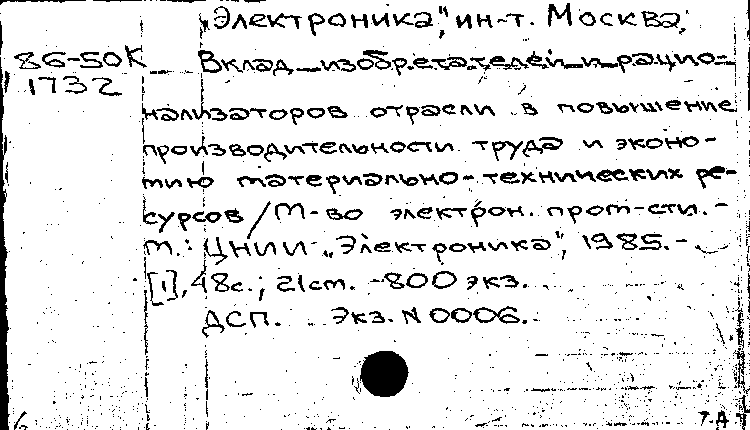 „Электроника", ин-т. Москва.
86-50К Вклад изобретателей и рацио-
1732
нализаторов отрасли в повышение
производительности труда и эконо-
мию материально-технических ре-
сурсов / М-во электрон. пром-сти. -
М.: ЦНИИ „Электроника", 1985. -
[1], 48с.; 21см. - 800 экз.
ДСП. Экз. N 0006.